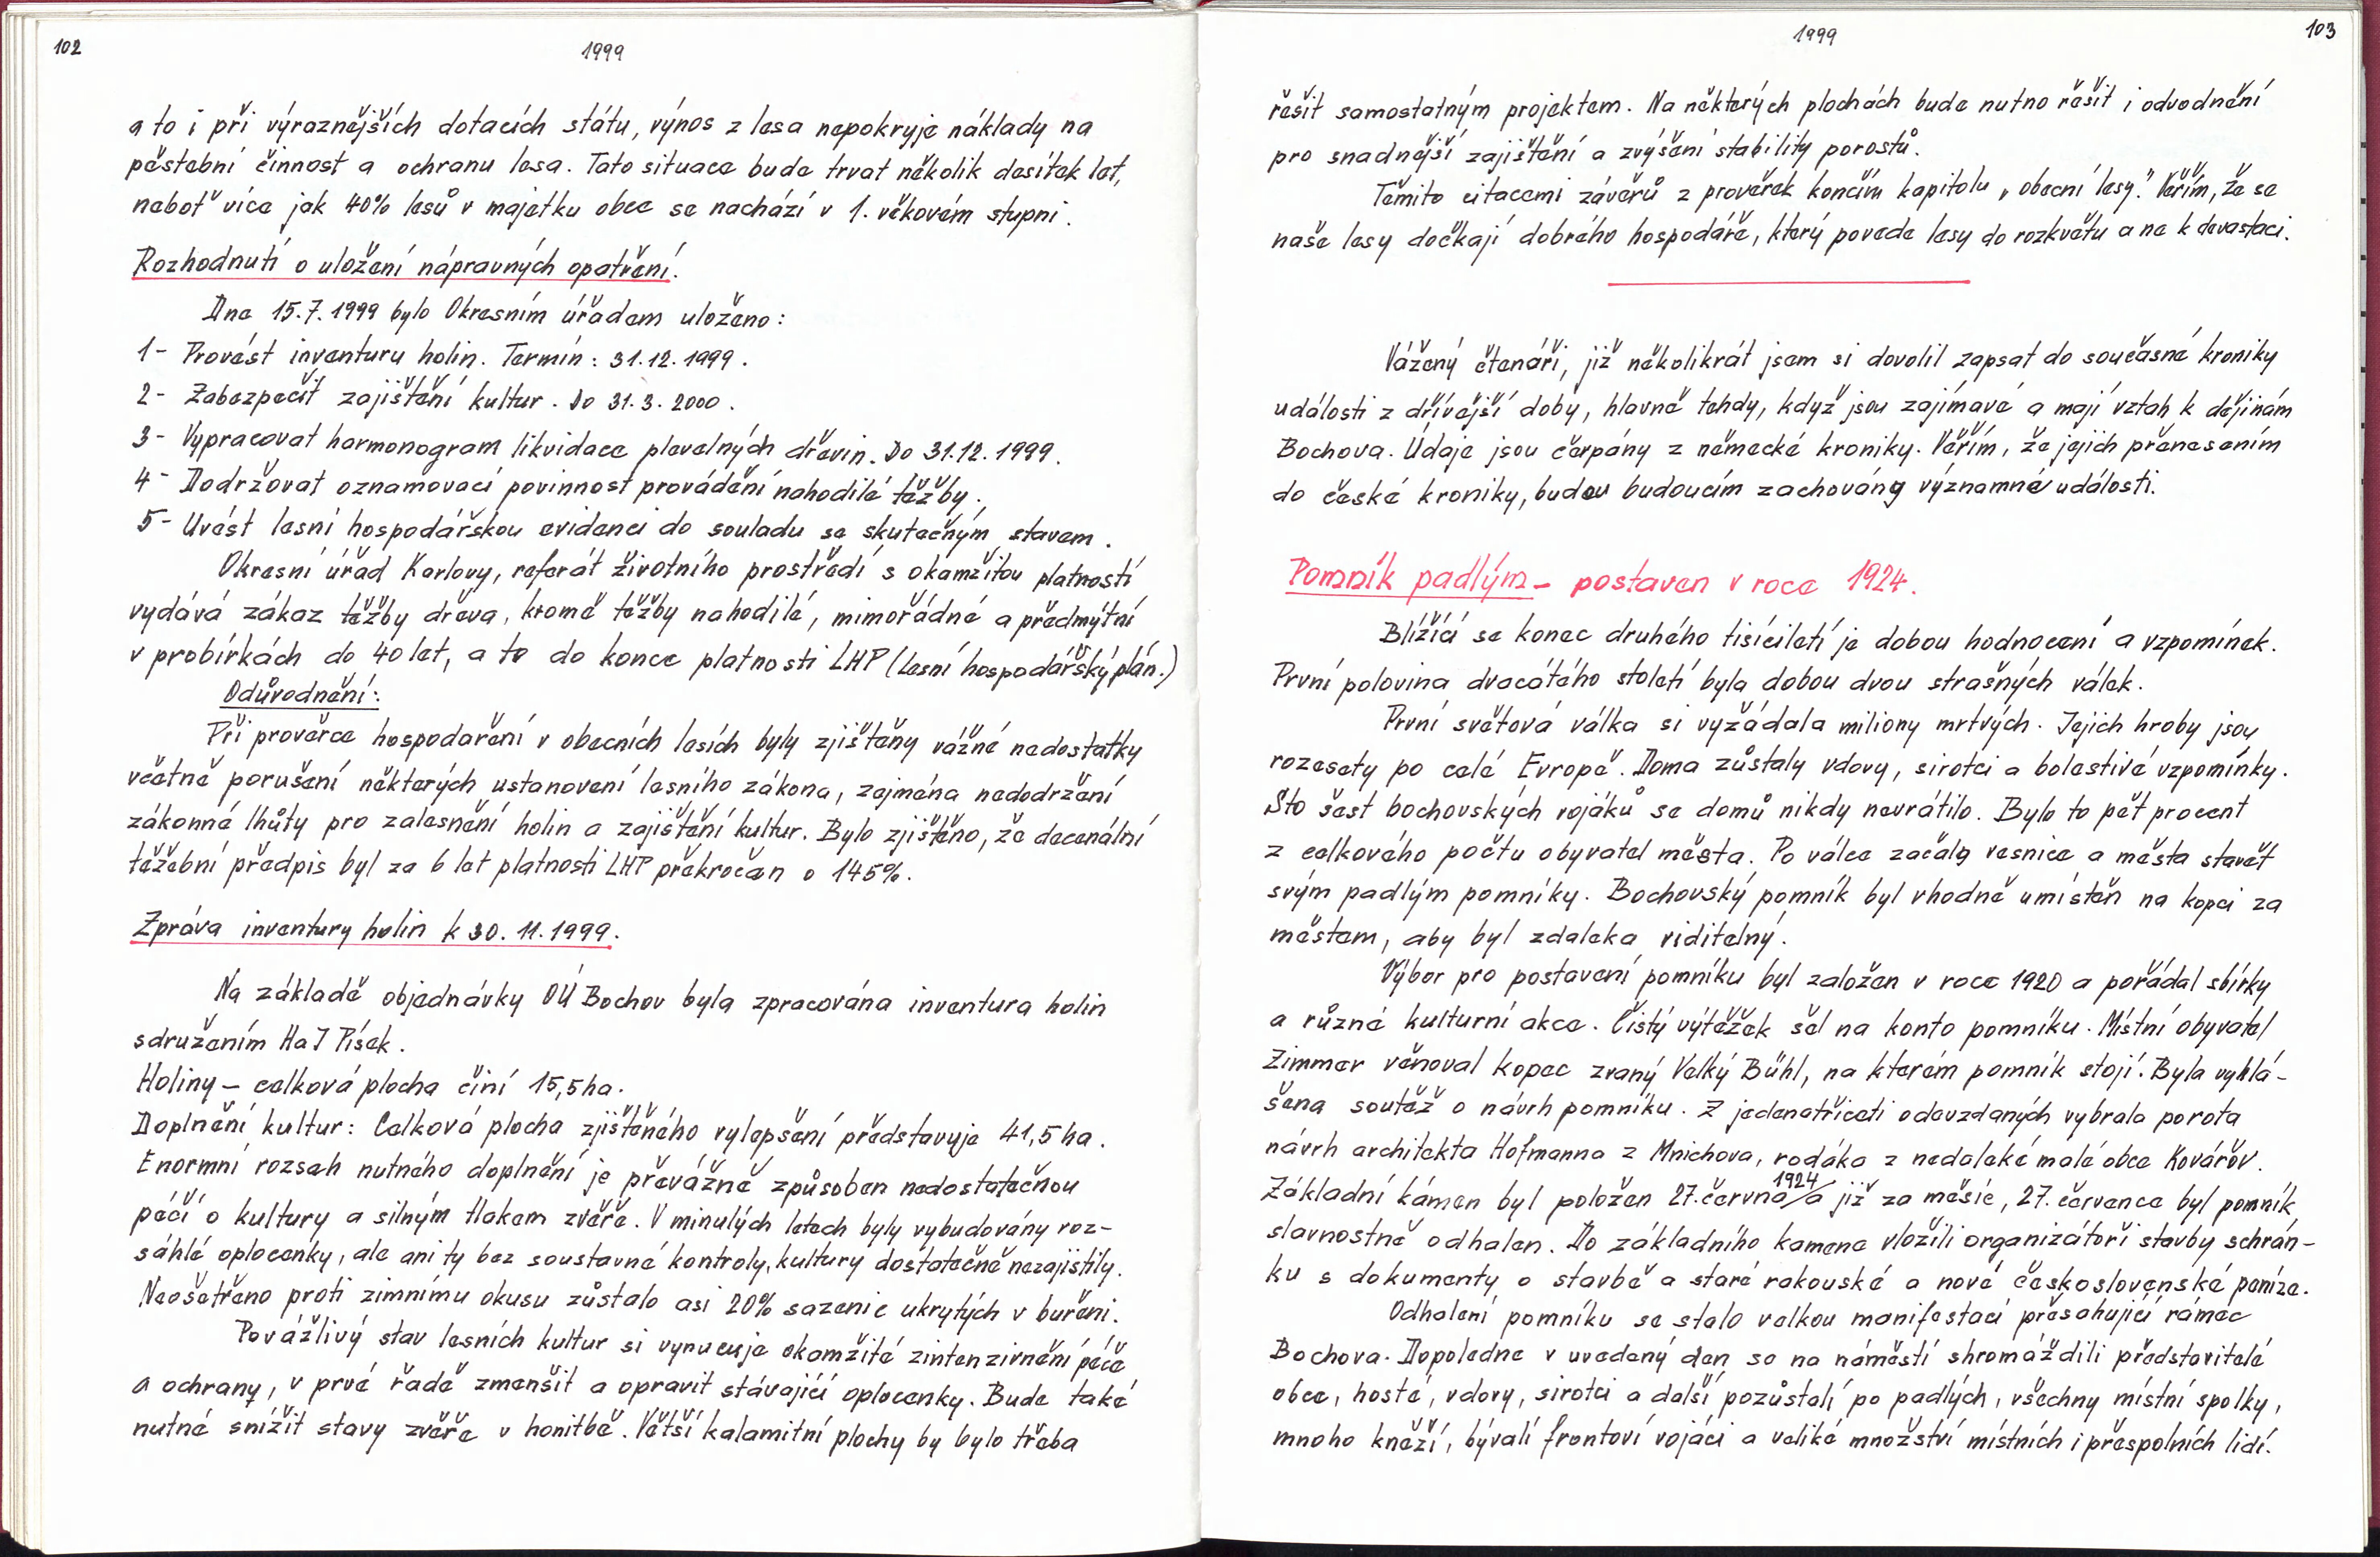 102
1999
a to i při výraznějších dotacích státu, výnos z lesa nepokryje náklady na
pěstební činnost a ochranu lesa. Tato situace bude trvat několik desítek let,
neboť více jak 40% lesů v majetku obce se nachází v 1. věkovém stupni.
Rozhodnutí o uložení nápravných opatření.
Dne 15.7.1999 bylo Okresním úřadem uloženo:
1- Provést inventuru holin. Termín: 31.12.1999.
2- Zabezpečit zajištění kultur. Do 31.3.2000.
3- Vypracovat harmonogram likvidace plevelných dřevin. Do 31.12.1999.
4- Dodržovat oznamovací povinnost provádění nahodilé těžby.
5- Uvést lesní hospodářskou evidenci do souladu se skutečným stavem.
Okresní úřad Karlovy, referát životního prostředí s okamžitou platností
vydává zákaz těžby dřeva, kromě těžby nahodilé, mimořádné a předmýtní
v probírkách do 40 let, a to do konce platnosti LHP (Lesní hospodářský plán.)
Odůvodnění:
Při prověrce hospodaření v obecních lesích byly zjištěny vážné nedostatky
včetně porušení některých ustanovení lesního zákona, zejména nedodržení
zákonné lhůty pro zalesnění holin a zajištění kultur. Bylo zjištěno, že decenální
těžební předpis byl za 6 let platnosti LHP překročen o 145%.
Zpráva inventury holin k 30. 11. 1999.
Na základě objednávky OÚ Bochov byla zpracována inventura holin
sdružením HaJ Písek.
Holiny – celková plocha činí 15,5 ha.
Doplnění kultur: Celková plocha zjištěného vylepšení představuje 41,5 ha.
Enormní rozsah nutného doplnění je převážně způsoben nedostatečnou
péčí o kultury a silným tlakem zvěře. V minulých letech byly vybudovány roz-
sáhlé oplocenky, ale ani ty bez soustavné kontroly, kultury dostatečně nezajistily.
Neošetřeno proti zimnímu okusu zůstalo asi 20% sazenic ukrytých v buřeni.
Povážlivý stav lesních kultur si vynucuje okamžité zintenzivnění péče
a ochrany, v prvé řadě zmenšit a opravit stávající oplocenky. Bude také
nutné snížit stavy zvěře v honitbě. Větší kalamitní plochy by bylo třeba
1999
103
řešit samostatným projektem. Na některých plochách bude nutno řešit i odvodnění
pro snadnější zajištění a zvýšení stability porostů.
Těmito citacemi závěrů z prověrek končím kapitolu „obecní lesy." Věřím, že se
naše lesy dočkají dobrého hospodáře, který povede lesy do rozkvětu a ne k devastaci.
Vážený čtenáři, již několikrát jsem si dovolil zapsat do současné kroniky
události z dřívější doby, hlavně tehdy, když jsou zajímavé a mají vztah k dějinám
Bochova. Údaje jsou čerpány z německé kroniky. Věřím, že jejich přenesením
do české kroniky, budou budoucím zachovány významné události.
Pomník padlým – postaven v roce 1924.
Blížící se konec druhého tisíciletí je dobou hodnocení a vzpomínek.
První polovina dvacátého století byla dobou dvou strašných válek.
První světová válka si vyžádala miliony mrtvých. Jejich hroby jsou
rozesety po celé Evropě. Doma zůstaly vdovy, sirotci a bolestivé vzpomínky.
Sto šest bochovských vojáků se domů nikdy nevrátilo. Bylo to pět procent
z celkového počtu obyvatel města. Po válce začala vesnice a města stavět
svým padlým pomníky. Bochovský pomník byl vhodně umístěn na kopci za
městem, aby byl zdaleka viditelný.
Výbor pro postavení pomníku byl založen v roce 1920 a pořádal sbírky
a různé kulturní akce. Čistý výtěžek šel na konto pomníku. Místní obyvatel
Zimmer věnoval kopec zvaný Velký Bühl, na kterém pomník stojí. Byla vyhlá-
šena soutěž o návrh pomníku. Z jedenatřiceti odevzdaných vybrala porota
návrh architekta Hofmanna z Mnichova, rodáka z nedaleké malé obce Kovářov.
Základní kámen byl položen 27. června 1924 a již za měsíc, 27. července byl pomník
slavnostně odhalen. Do základního kamene vložili organizátoři stavby schrán-
ku s dokumenty o stavbě a staré rakouské a nové československé peníze.
Odhalení pomníku se stalo velkou manifestací přesahující rámec
Bochova. Dopoledne v uvedený den se na náměstí shromáždili představitelé
obce, hosté, vdovy, sirotci a další pozůstalí po padlých, všechny místní spolky,
mnoho kněží, bývalí frontoví vojáci a veliké množství místních i přespolních lidí.